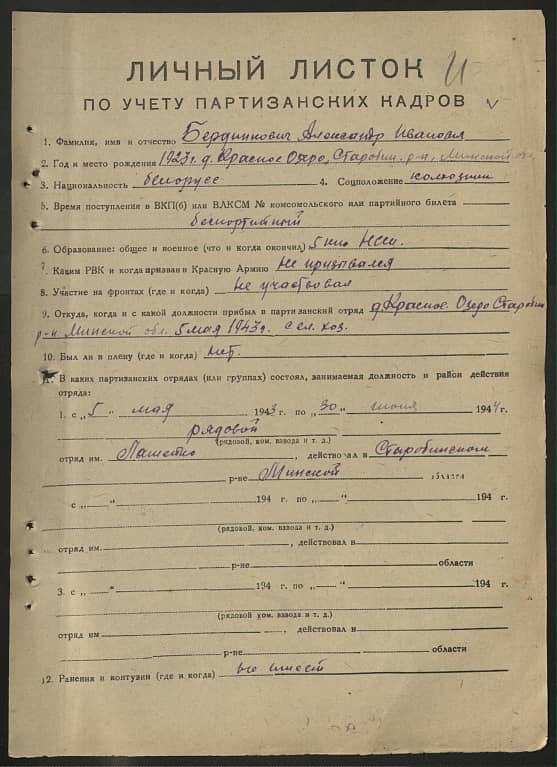 ЛИЧНЫЙ ЛИСТОК
ПО УЧЕТУ ПАРТИЗАНСКИХ КАДРОВ
1. Фамилия, имя и отчество Бердникович Александр Иванович
2. Год и место рождения 1923 г. д. Красное Озеро, Старобин. р-н, Минской обл.
3. Национальность белорусс 4. Соцположение колхозник
5. Время поступления в ВКП(б) или ВЛКСМ № комсомольского или партийного билета
беспартийный
6. Образование: общее и военное (что и когда окончил) 5 кл. НСШ.
7. Каким РВК и когда призван в Красную Армию Не призывался
8. Участие на фронтах (где и когда) Не участвовал
9. Откуда, когда и с какой должности прибыл в партизанский отряд д. Красное Озеро Старобин
р-н Минской обл. 5 мая 1943 г. с сел. хоз.
10. Был ли в плену (где и когда) нет.
11. В каких партизанских отрядах (или группах) состоял, занимаемая должность и район действия
отряда:
1. с „5" мая 1943 г. по „30" июня 1944 г.
рядовой
(рядовой, ком. взвода и т. д.)
отряд им. , действовал в Старобинском
р-не Минской области
с „ " 194 г. по „ " 194 г.
(рядовой, ком. взвода и т. д.)
отряд им. , действовал в
р-не области
3. с „ " 194 г. по „ " 194 г.
(рядовой, ком. взвода и т. д.)
отряд им. , действовал в
р-не области
12. Ранения и контузии (где и когда) не имеет